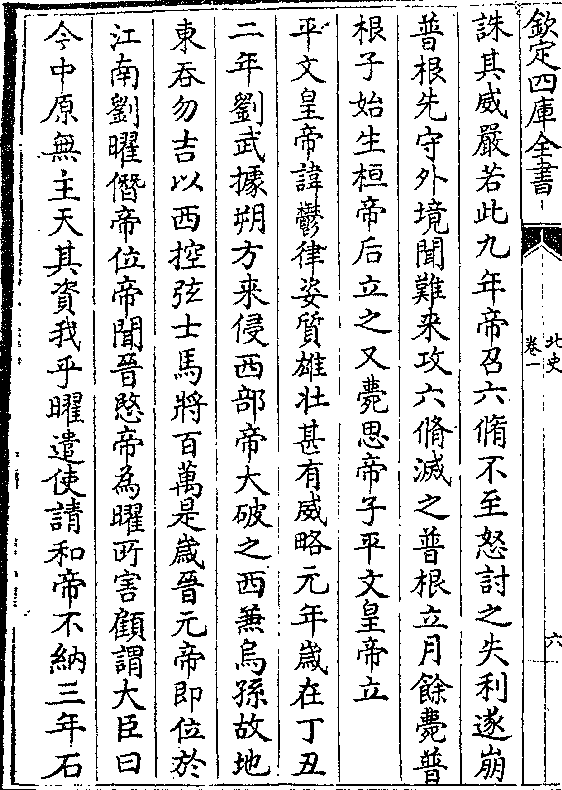 欽定四庫全書
北史
卷一
六
誅其威嚴若此九年帝召六脩不至怒討之失利遂崩
普根先守外境聞難來攻六脩滅之普根立月餘薨普
根子始生桓帝后立之又薨思帝子平文皇帝立
平文皇帝諱鬱律姿質雄壯甚有威略元年嵗在丁丑
二年劉武據朔方來侵西部帝大破之西兼烏孫故地
東吞勿吉以西控弦士馬將百萬是嵗晉元帝即位於
江南劉曜僭帝位帝聞晉愍帝為曜所害顧謂大臣曰
今中原無主天其資我乎曜遣使請和帝不納三年石